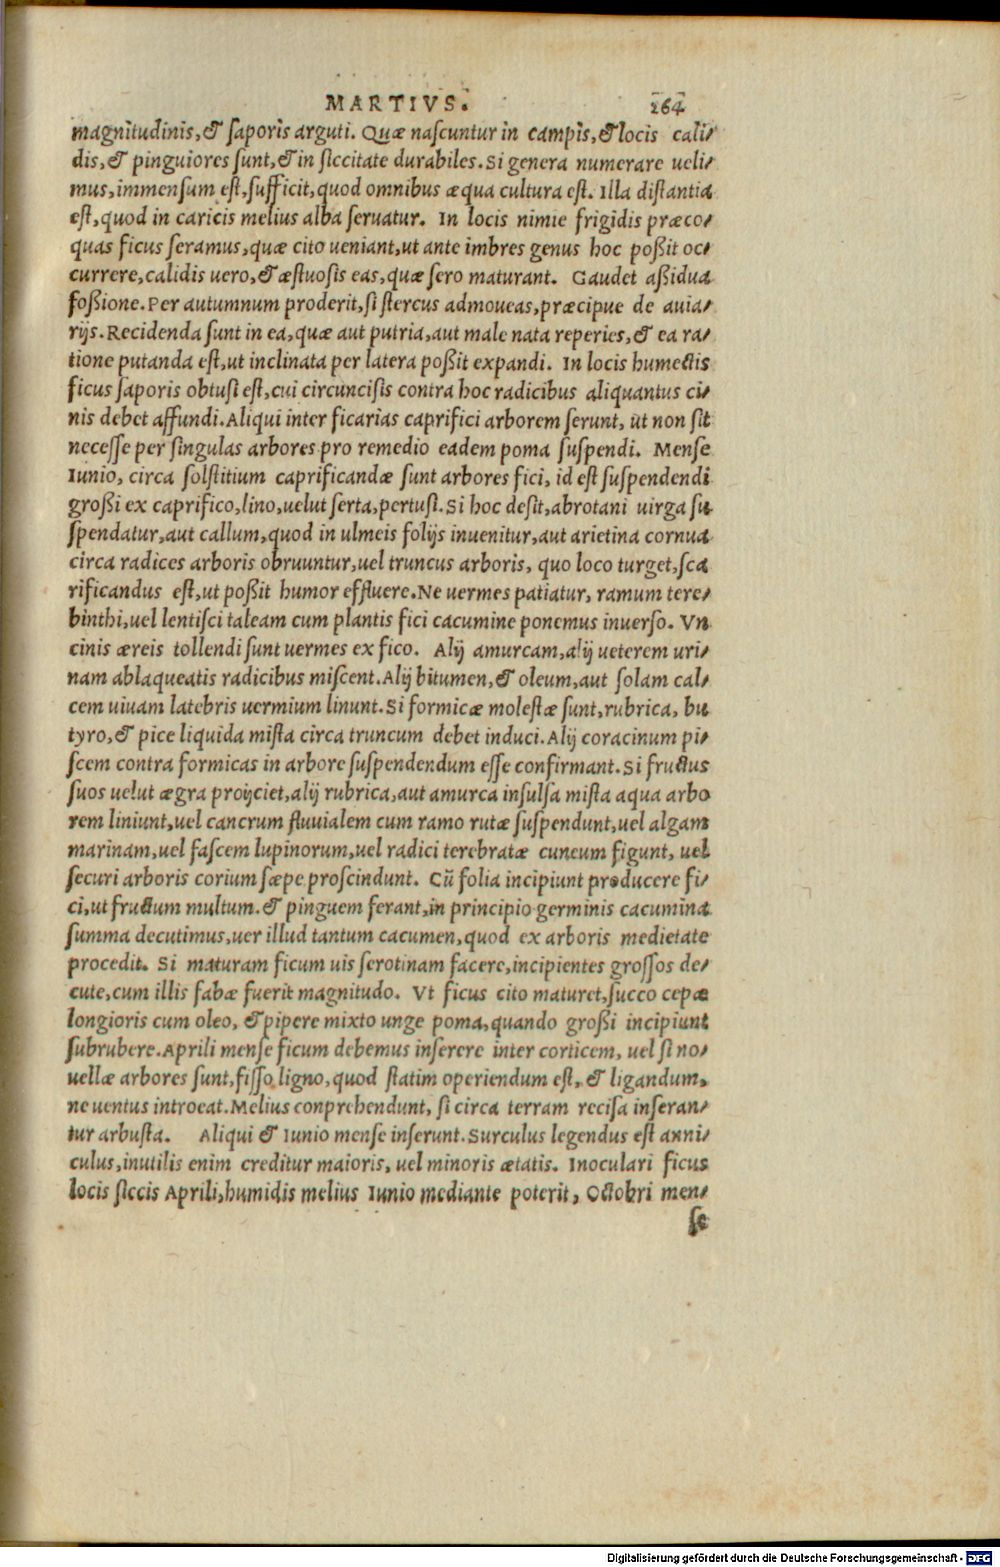 MARTIVS. 264
magnitudinis, & saporis arguti. Quæ nascuntur in campis, & locis cali-
dis, & pinguiores sunt, & in siccitate durabiles. Si genera numerare ueli-
mus, immensum est, sufficit, quod omnibus æqua cultura est. Illa distantia
est, quod in caricis melius alba seruatur. In locis nimie frigidis præco-
quas ficus seramus, quæ cito ueniant, ut ante imbres genus hoc poßit oc-
currere, calidis uero, & æstuosis eas, quæ sero maturant. Gaudet aßidua
foßione. Per autumnum proderit, si stercus admoueas, præcipue de auia-
rijs. Recidenda sunt in ea, quæ aut putria, aut male nata reperies, & ea ra-
tione putanda est, ut inclinata per latera poßit expandi. In locis humectis
ficus saporis obtusi est, cui circuncisis contra hoc radicibus aliquantus ci-
nis debet affundi. Aliqui inter ficarias caprifici arborem serunt, ut non sit
necesse per singulas arbores pro remedio eadem poma suspendi. Mense
Iunio, circa solstitium caprificandæ sunt arbores fici, id est suspendendi
großi ex caprifico, lino, uelut serta, pertusi. Si hoc desit, abrotani uirga su
spendatur, aut callum, quod in ulmeis folijs inuenitur, aut arietina cornua
circa radices arboris obruuntur, uel truncus arboris, quo loco turget, sca
rificandus est, ut poßit humor effluere. Ne uermes patiatur, ramum tere-
binthi, uel lentisci taleam cum plantis fici cacumine ponemus inuerso. Vn
cinis æreis tollendi sunt uermes ex fico. Alij amurcam, alij ueterem uri-
nam ablaqueatis radicibus miscent. Alij bitumen, & oleum, aut solam cal-
cem uiuam latebris uermium linunt. Si formicæ molestæ sunt, rubrica, bu
tyro, & pice liquida mista circa truncum debet induci. Alij coracinum pi-
scem contra formicas in arbore suspendendum esse confirmant. Si fructus
suos uelut ægra proijciet, alij rubrica, aut amurca insulsa mista aqua arbo
rem liniunt, uel cancrum fluuialem cum ramo rutæ suspendunt, uel algam
marinam, uel fascem lupinorum, uel radici terebratæ cuneum figunt, uel
securi arboris corium sæpe proscindunt. Cũ folia incipiunt producere fi-
ci, ut fructum multum. & pinguem ferant, in principio germinis cacumina
summa decutimus, uer illud tantum cacumen, quod ex arboris medietate
procedit. Si maturam ficum uis serotinam facere, incipientes grossos de-
cute, cum illis fabæ fuerit magnitudo. Vt ficus cito maturet, succo cepæ
longioris cum oleo, & pipere mixto unge poma, quando großi incipiunt
subrubere. Aprili mense ficum debemus inserere inter corticem, uel si no-
uellæ arbores sunt, fisso ligno, quod statim operiendum est, & ligandum,
ne uentus introeat. Melius conprehendunt, si circa terram recisa inseran-
tur arbusta. Aliqui & Iunio mense inserunt. Surculus legendus est anni-
culus, inutilis enim creditur maioris, uel minoris ætatis. Inoculari ficus
locis siccis Aprili, humidis melius Iunio mediante poterit, Octobri men-
se
Digitalisierung gefördert durch die Deutsche Forschungsgemeinschaft - DFG